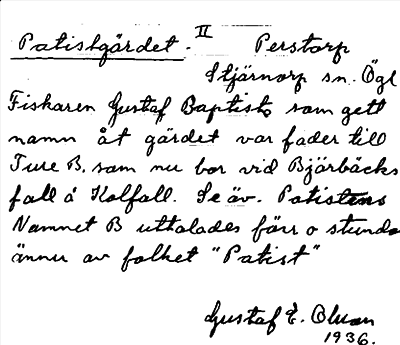 Patistgärdet. II Perstorp
Stjärnorp sn. Ögl
Fiskaren Gustaf Baptist som gett
namn åt gärdet var fader till
Ture B. som nu bor vid Bjärbäcks
fall å Kolfall. Se äv. Patistens
Namnet B uttalades förr o stundo
ännu av folket "Patist"
Gustaf E. Olson
1936.